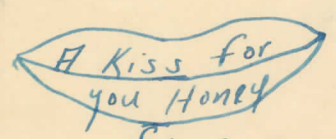 A Kiss for
you Honey